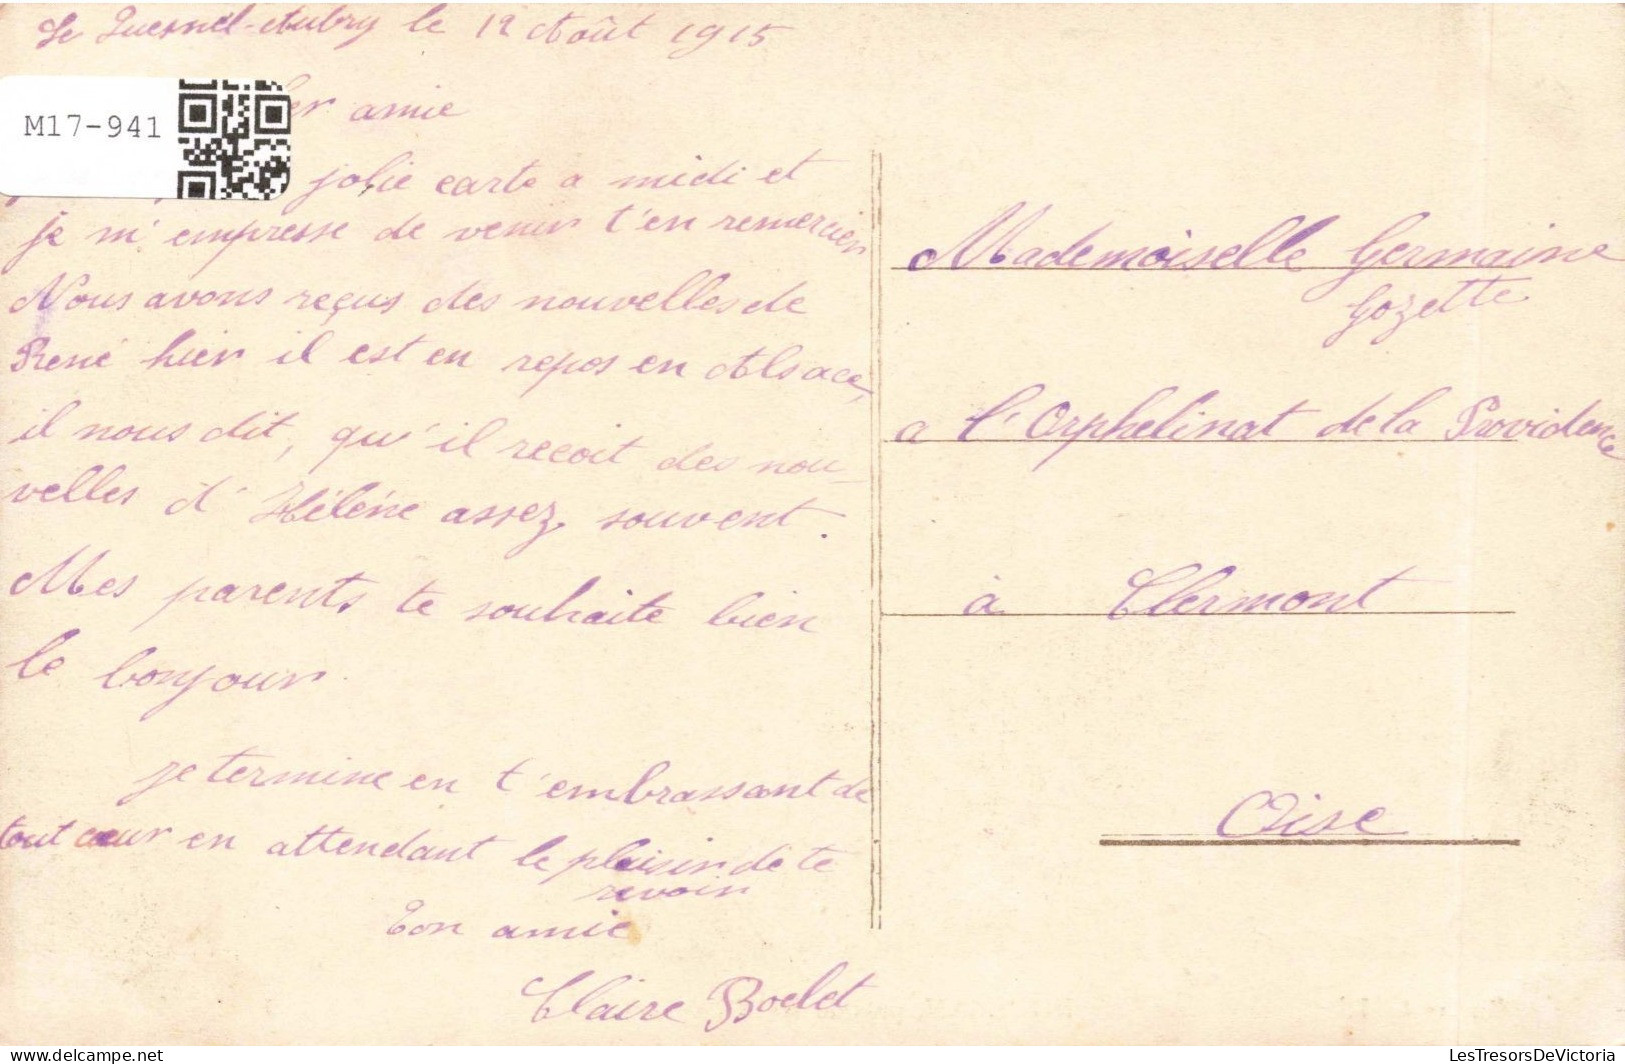 Le Quesnel-Aubry le 12 Août 1915
M17-941
amie
jolie carte a midi et
je m'empresse de venir t'en remercier
Nous avons reçus des nouvelles de
René hier il est en repos en Alsace,
il nous dit, qu'il recoit des nou-
velles d'Hélène assez souvent.
Mes parents te souhaite bien
le bonjour.
je termine en t'embrassant de
tout cœur en attendant le plaisir de te
revoir
Ton amie
Claire Boelet
Mademoiselle Germaine
Gozette
a l'Orphelinat de la Providence
à Clermont
Oise
LesTresorsDeVictoria